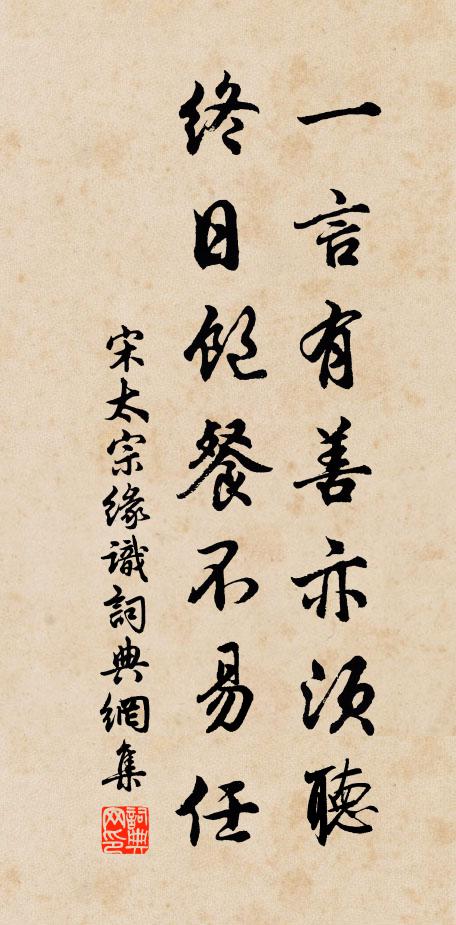 一言有善亦須聽
終日飽餐不易任
宋太宗緣識詞典網集
詞典网印